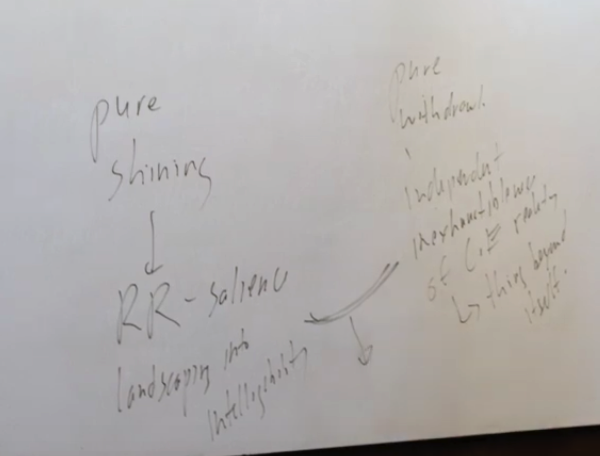 pure
shining
RR-salience
landscaping into
intelligibility
pure
withdrawl.
independent
inexhaustibleness
of C.E reality
↳ thing beyond
itself.